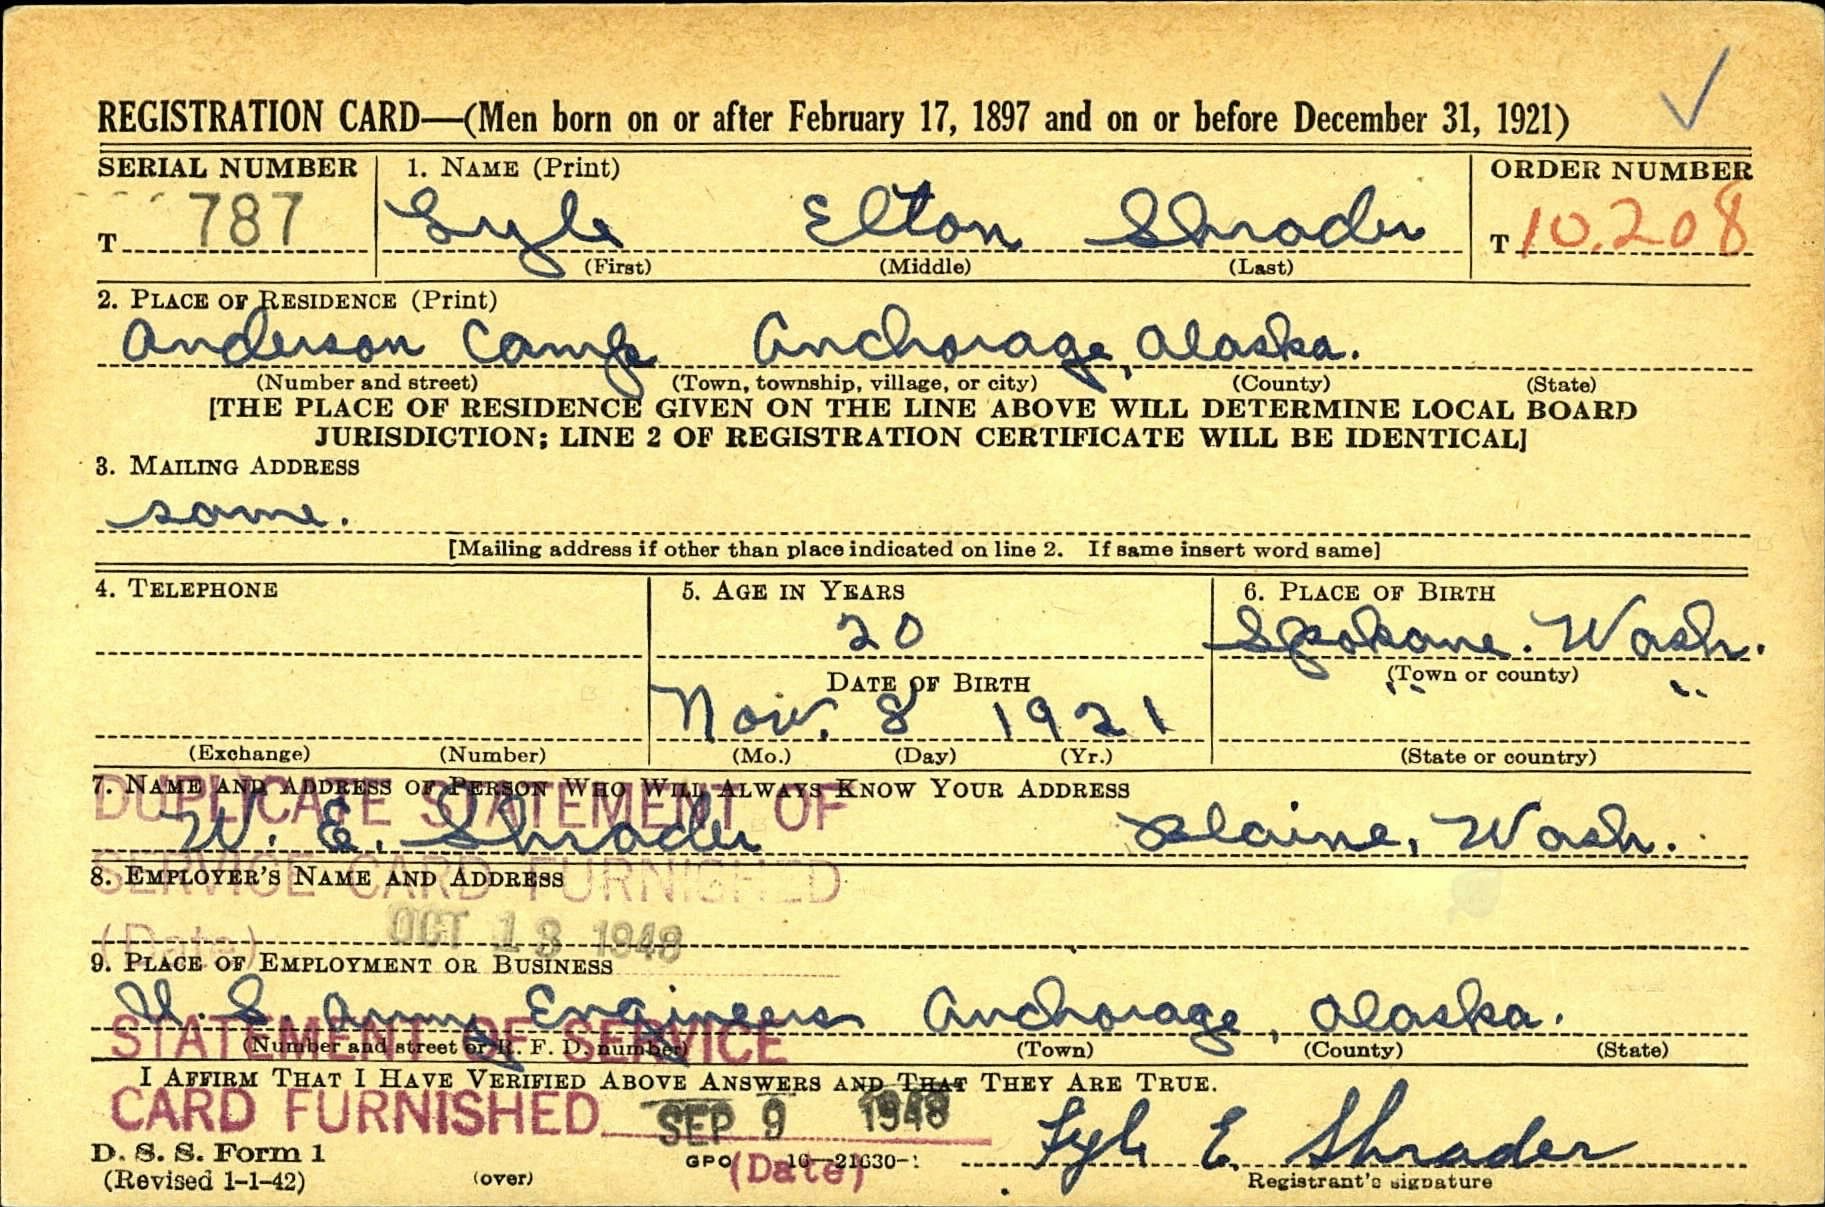 REGISTRATION CARD—(Men born on or after February 17, 1897 and on or before December 31, 1921)
SERIAL NUMBER 1. NAME (Print) ORDER NUMBER
T 787 Lyle Elton Shrader T 10,208
(First) (Middle) (Last)
2. PLACE OF RESIDENCE (Print)
Anderson Camp Anchorage, Alaska.
(Number and street) (Town, township, village, or city) (County) (State)
[THE PLACE OF RESIDENCE GIVEN ON THE LINE ABOVE WILL DETERMINE LOCAL BOARD
JURISDICTION; LINE 2 OF REGISTRATION CERTIFICATE WILL BE IDENTICAL]
3. MAILING ADDRESS
same.
[Mailing address if other than place indicated on line 2. If same insert word same]
4. TELEPHONE 5. AGE IN YEARS 6. PLACE OF BIRTH
20 Spokane. Wash.
DATE OF BIRTH (Town or county)
Nov. 8 1921
(Exchange) (Number) (Mo.) (Day) (Yr.) (State or country)
7. NAME AND ADDRESS OF PERSON WHO WILL ALWAYS KNOW YOUR ADDRESS
DUPLICATE STATEMENT OF
W. E. Shrader Blaine, Wash.
SERVICE CARD FURNISHED
8. EMPLOYER'S NAME AND ADDRESS
(Date) OCT 13 1948
9. PLACE OF EMPLOYMENT OR BUSINESS
U. S. Army Engineers Anchorage, Alaska.
STATEMENT OF SERVICE
(Number and street or R. F. D. number) (Town) (County) (State)
I AFFIRM THAT I HAVE VERIFIED ABOVE ANSWERS AND THAT THEY ARE TRUE.
CARD FURNISHED SEP 9 1948
Lyle E. Shrader
D. S. S. Form 1
(Revised 1-1-42) (over) GPO 16—21630-1 (Date) Registrant's signature